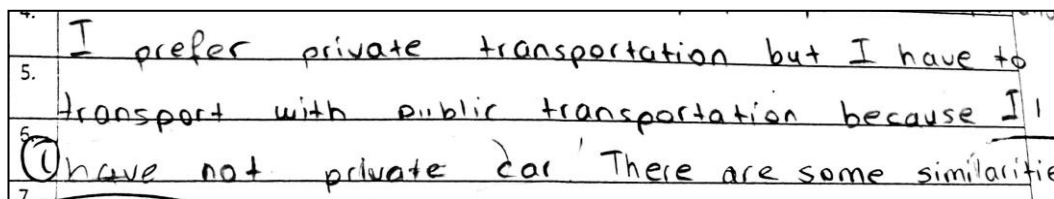 4.
I prefer private transportation but I have to
5.
transport with public transportation because I 1
6.
1 have not private car. There are some similaritie
7